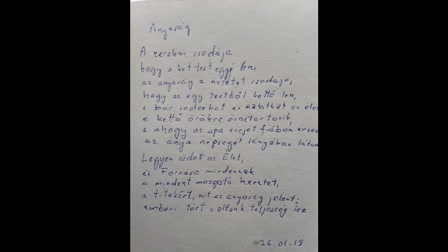 Anyaság
A szerelem csodája
hogy a két test eggyé lesz,
az anyaság a szeretet csodája,
hogy az egy testből kettő lesz,
s bár sodorhat és az élet
e kettő örökre összetartozik,
s ahogy az apa erejét fiában
az anya szépségét lányában
Legyen áldott az Élet,
és Forrása mindennek
a mindent mozgató szeretet,
a titokért, mit az anyaság jelent:
emberi tört voltunk teljesség lesz
26.01.19